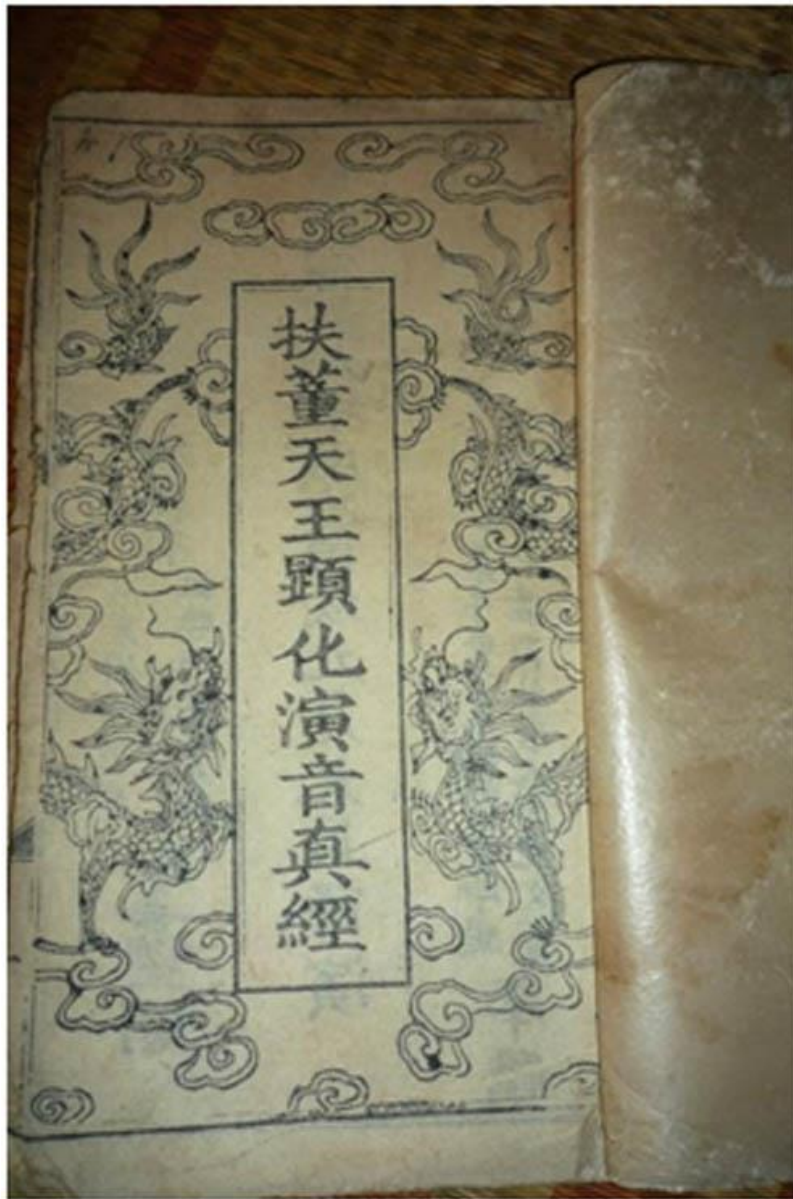 扶董天王顕化演音真經